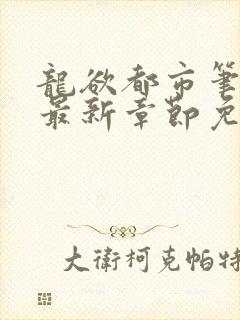 龍欲都市筆
最新章節免
大衛柯克帕特